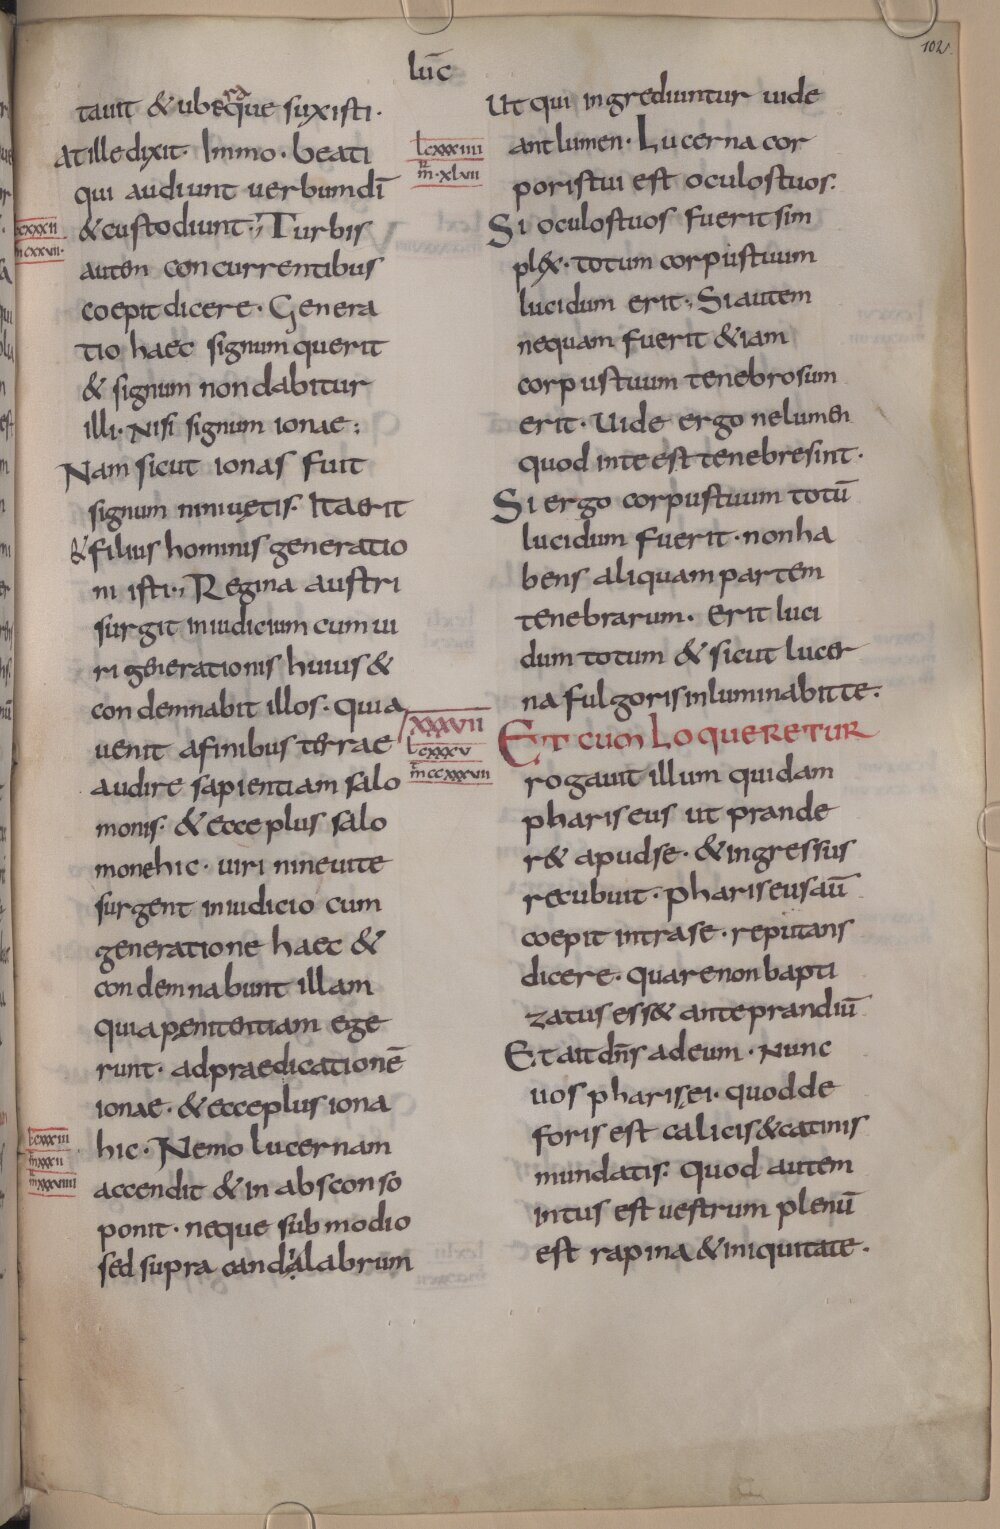 102
lūc
tauit & ubera que suxisti·
At ille dixit· Immo· beati
qui audiunt uerbum dī
& custodiunt·,, Turbis
autem concurrentibus
coepit dicere· Genera
tio haec signum querit
& signum non dabitur
illi· Nisi signum ionae;
Nam sicut ionas fuit
signum niniuętis· Ita erit
& filius hominis generatio
ni isti·,, Regina austri
surgit in iudicium cum ui
ri generationis huius &
condemnabit illos· quia
uenit a finibus terrae
audire sapientiam salo
monis· & ecce plus salo
mone hic· uiri nineuite
surgent in iudicio cum
generatione haec &
condemnabunt illam
quia penitentiam ege
runt· ad praedicationē
ionae· & ecce plus iona
hic· Nemo lucernam
accendit & in absconso
ponit· neque sub modio
sed supra candalabrum
cxxxii
m cxxvii·
lcxxxiii
m xxxii
m xxxviiii
Ut qui ingrediuntur uide
ant lumen· Lucerna cor
poris tui est oculos tuos·
Si oculos tuos fuerit sim
plex· totum corpus tuum
lucidum erit·, Si autem
nequam fuerit & iam
corpus tuum tenebrosum
erit· Uide ergo ne lumen
quod in te est tenebre sint·
Si ergo corpus tuum totū
lucidum fuerit· non ha
bens aliquam partem
tenebrarum· erit luci
dum totum & sicut lucer
na fulgoris inluminabit te·
Et cum loqueretur
rogauit illum quidam
phariseus ut prande
r& apud se· & ingressus
recubuit· phariseus aū
coepit intra se· reputans
dicere· quare non bapti
zatus ess& ante prandiū
Et ait dn̄s ad eum· Nunc
uos pharisęi· quod de
foris est calicis & catinis
mundatis· quod autem
intus est uestrum plenū
est rapina & iniquitate·
lcxxxiiii
m·xlvii
xxxvii
lcxxxv
m ccxxxvii